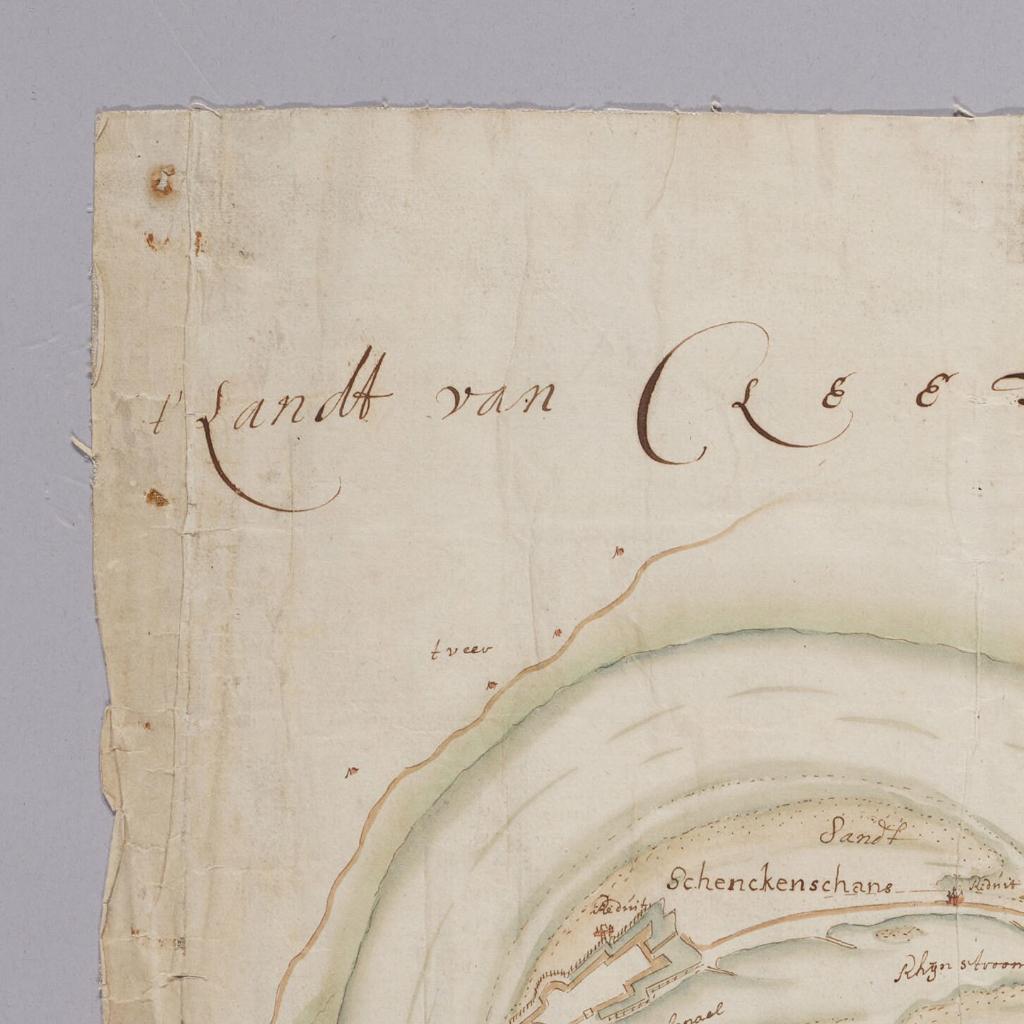 t' Landt van CLEE
t veer
Sandt
Schenckenschans
Reduit
Reduit
Rhyn stroom